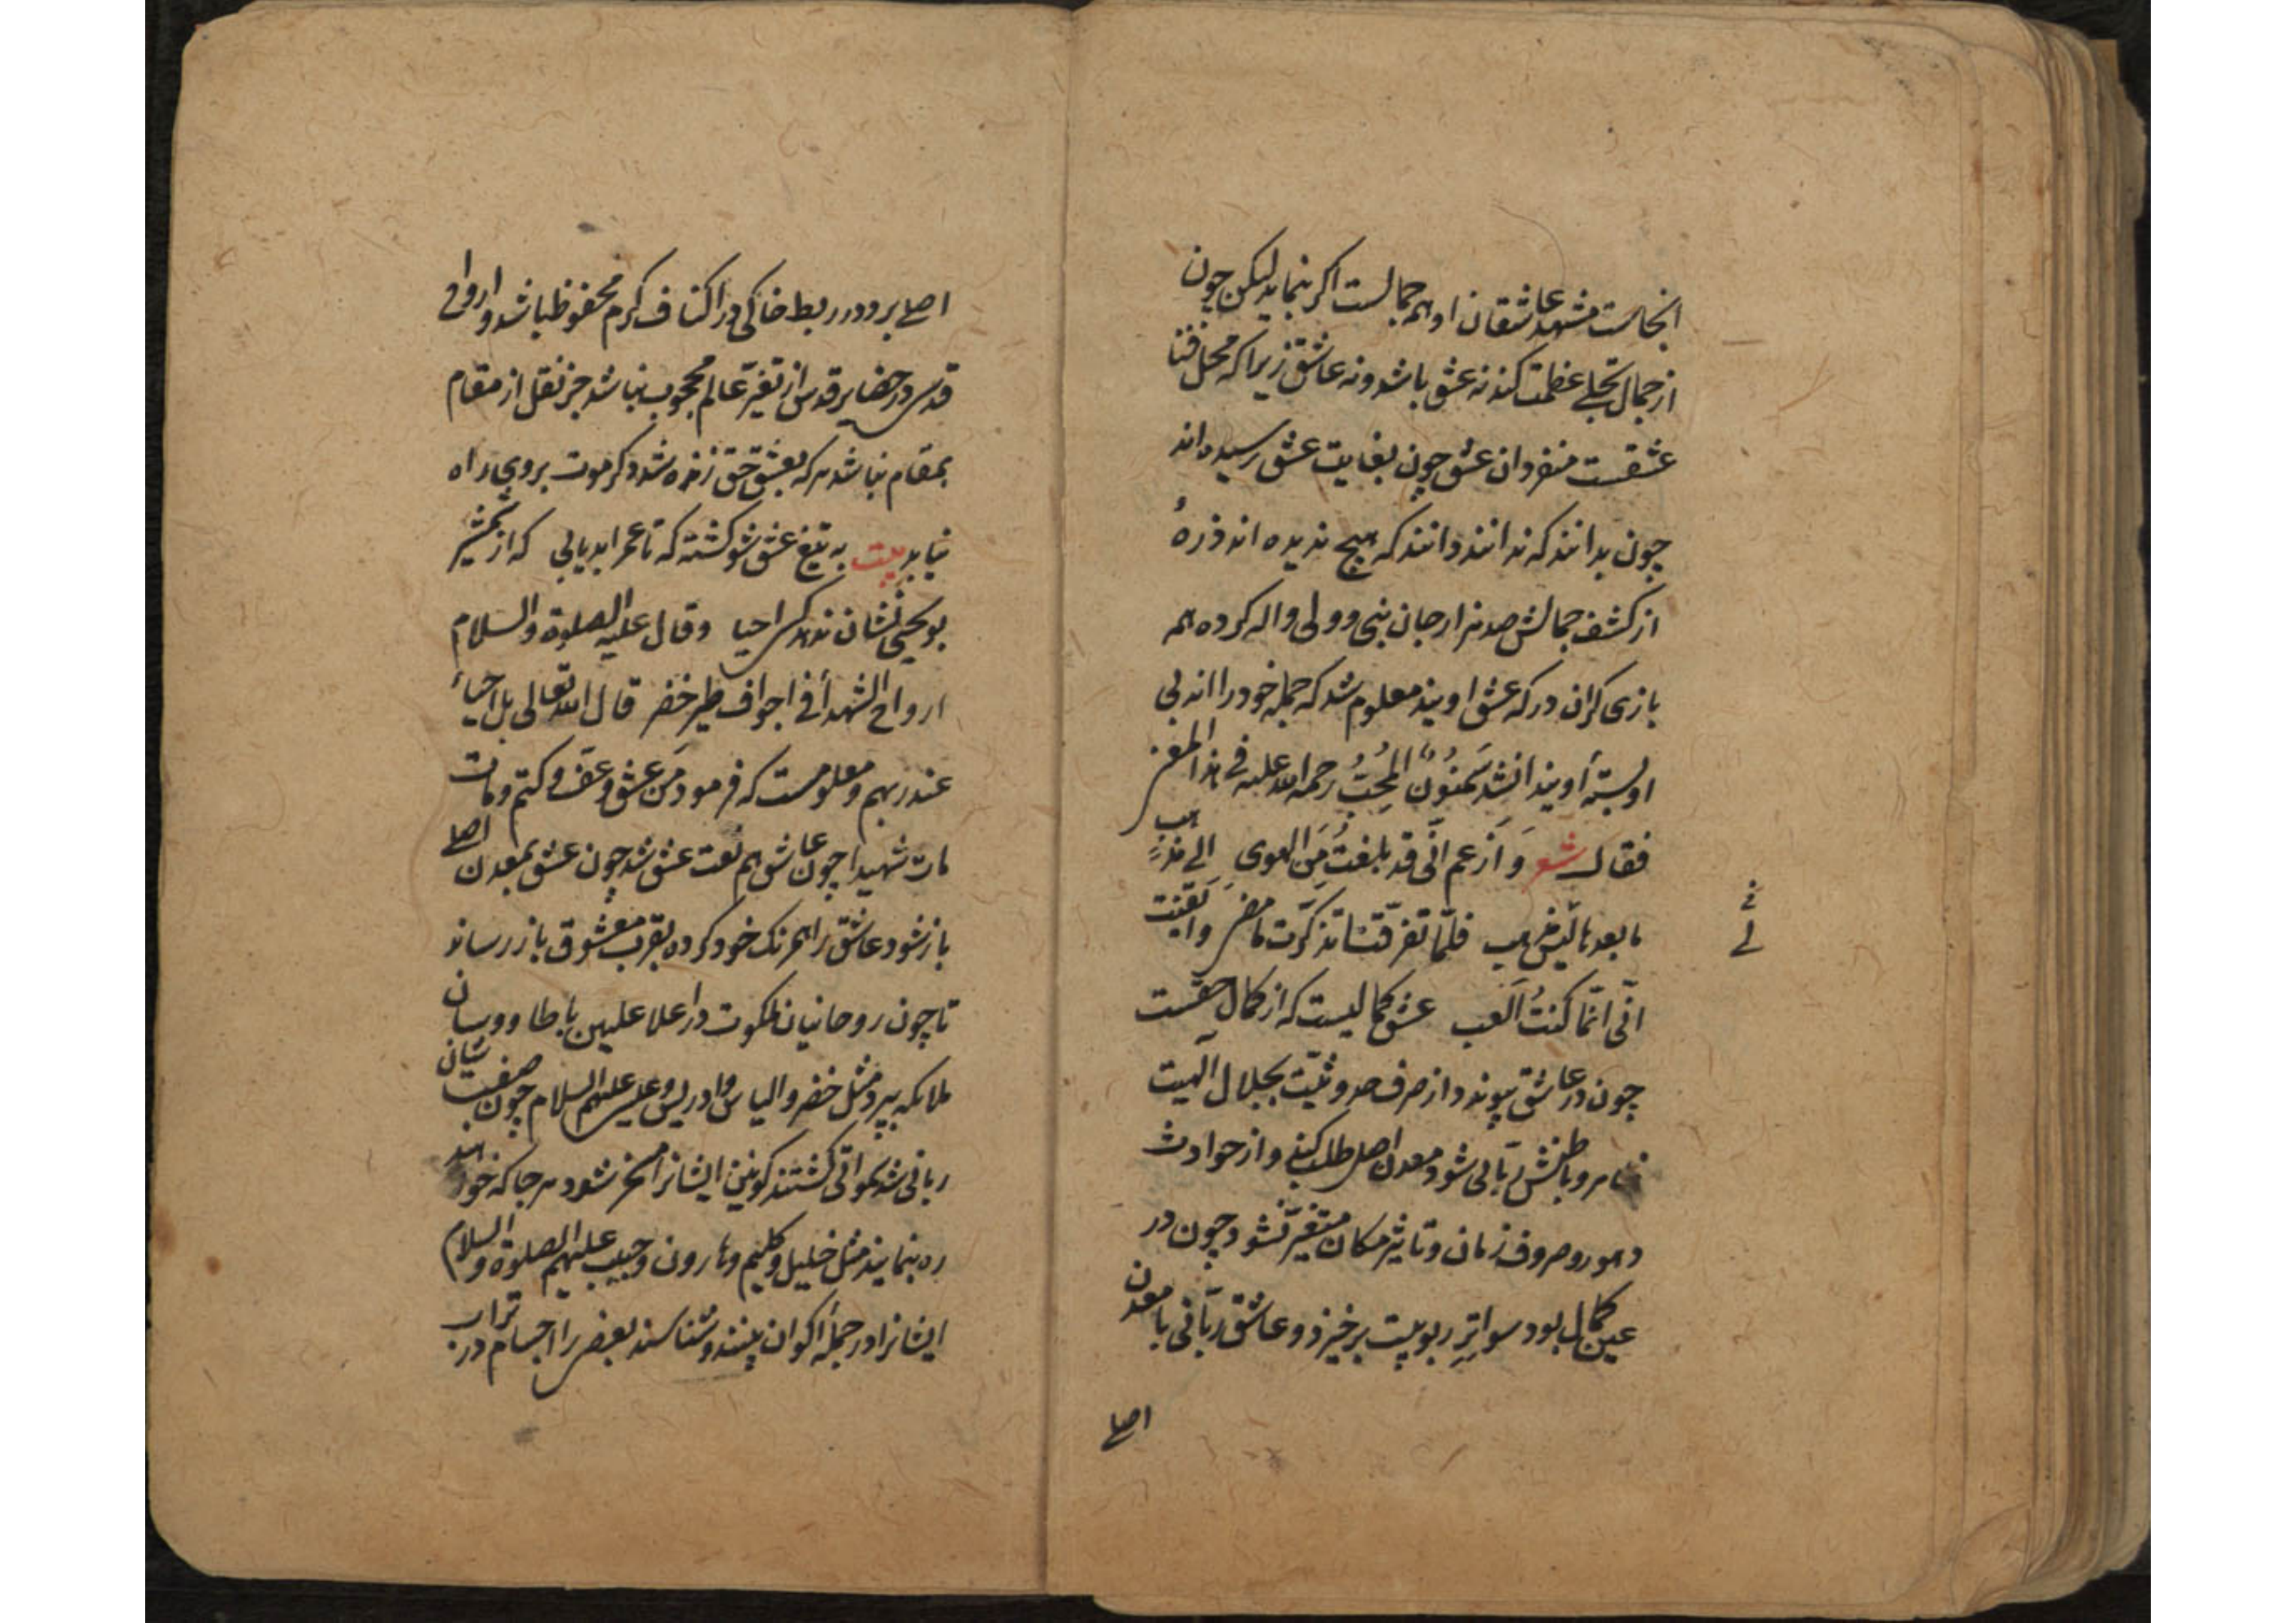 انجاست مشهد عاشقان او هم جمالست اکر بنماید لیکن چون
از جمال تجلی عظمت کند نه عشق باشد و نه عاشق زیرا که محل فنا
عشقست منفردان عشق چون بغایت عشق رسیده اند
چون بدانند که ندانند دانند که هیچ ندیده اند ذرهٔ
از کشف جمالش صد هزار جان نبی و ولی واله کرده همه
بازی کران درکه عشق اویند معلوم شد که جمله خود را اند بی
او بستهٔ اویند انشد سَمنُونٌ المُحِبُّ رحمه الله علیه فی هذا المعنی
فقال شعر وَ اَزعم انّی قد بلغتُ مِنَ الهوی الی مذهبٍ
ما بعد مالی مذهب فلمّا تفرّقنا تذکّرت ما مضی وایقنت
انّی انّما کنتُ اَلعب عشق کمالیست که از کمال حقّست
چون در عاشق پیوندد از صرف حدوثیّت بجلال الٓهیت
ظاهر و باطنش ربّانی شود معدن اصل طلب کند و از حوادث
دهور و صروف زمان و تاثیر مکان متغیّر نشود چون در
عین کمال بود سواتر ربوبیت برخیزد و عاشق ربّانی با معدن
اصلی
فی
لی
اصلی برود در ربط خاکی در اکناف کرم محفوظ باشد و ارواح
قدسی در حضایر قدس از تغیّر عالم محجوب نباشد جز نقل از مقام
بمقام نباشد هر که بعشق حق زنده شد دکر موت بر وی راه
نیابد بیت به تیغ عشق شو کشته که تا عمر ابد یابی که از شمشیر
بویحیی نشان ندهد کسی احیا وقال علیه الصلوة والسلام
ارواح الشهدأ فی اجواف طیر خضر قال الله تعالی بل احیاءٌ
عند ربهم و معلومست که فرمود مَن عشق و عَفّ و کتم و مات
مات شهیدا چون عاشق هم نعت عشق شد چون عشق بمعدن اصلی
باز شود عاشق را همرنک خود کرده بقرب معشوق باز رساند
تا چون روحانیان ملکوت در اعلا علیین با طاووسان
ملائکه بپرد مثل خضر و الیاس و ادریس و عیسی علیهم السلام چون صفت شان
ربانی شد کونین ایشانرا مسخر شود هر جا که خواهند
ره بنمایند مثل خلیل و کلیم و هارون و حبیب علیهم الصلوة والسلام
ایشانرا در جملهٔ اکوان بینند و شناسند بعضی را اجسام در تراب